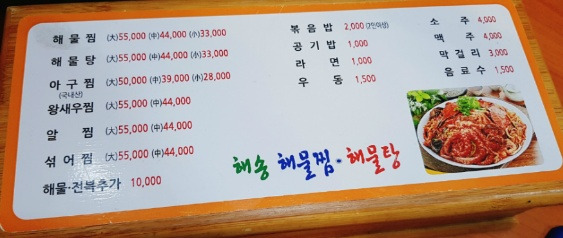 해물찜 (大)55,000 (中)44,000 (小)33,000
해물탕 (大)55,000 (中)44,000 (小)33,000
아구찜 (大)50,000 (中)39,000 (小)28,000
(국내산)
왕새우찜 (大)55,000 (中)44,000
알찜 (大)55,000 (中)44,000
섞어찜 (大)55,000 (中)44,000
해물·전복추가 10,000
볶음밥 2,000 (2인이상)
공기밥 1,000
라면 1,000
우동 1,500
소주 4,000
맥주 4,000
막걸리 3,000
음료수 1,500
해송 해물찜·해물탕